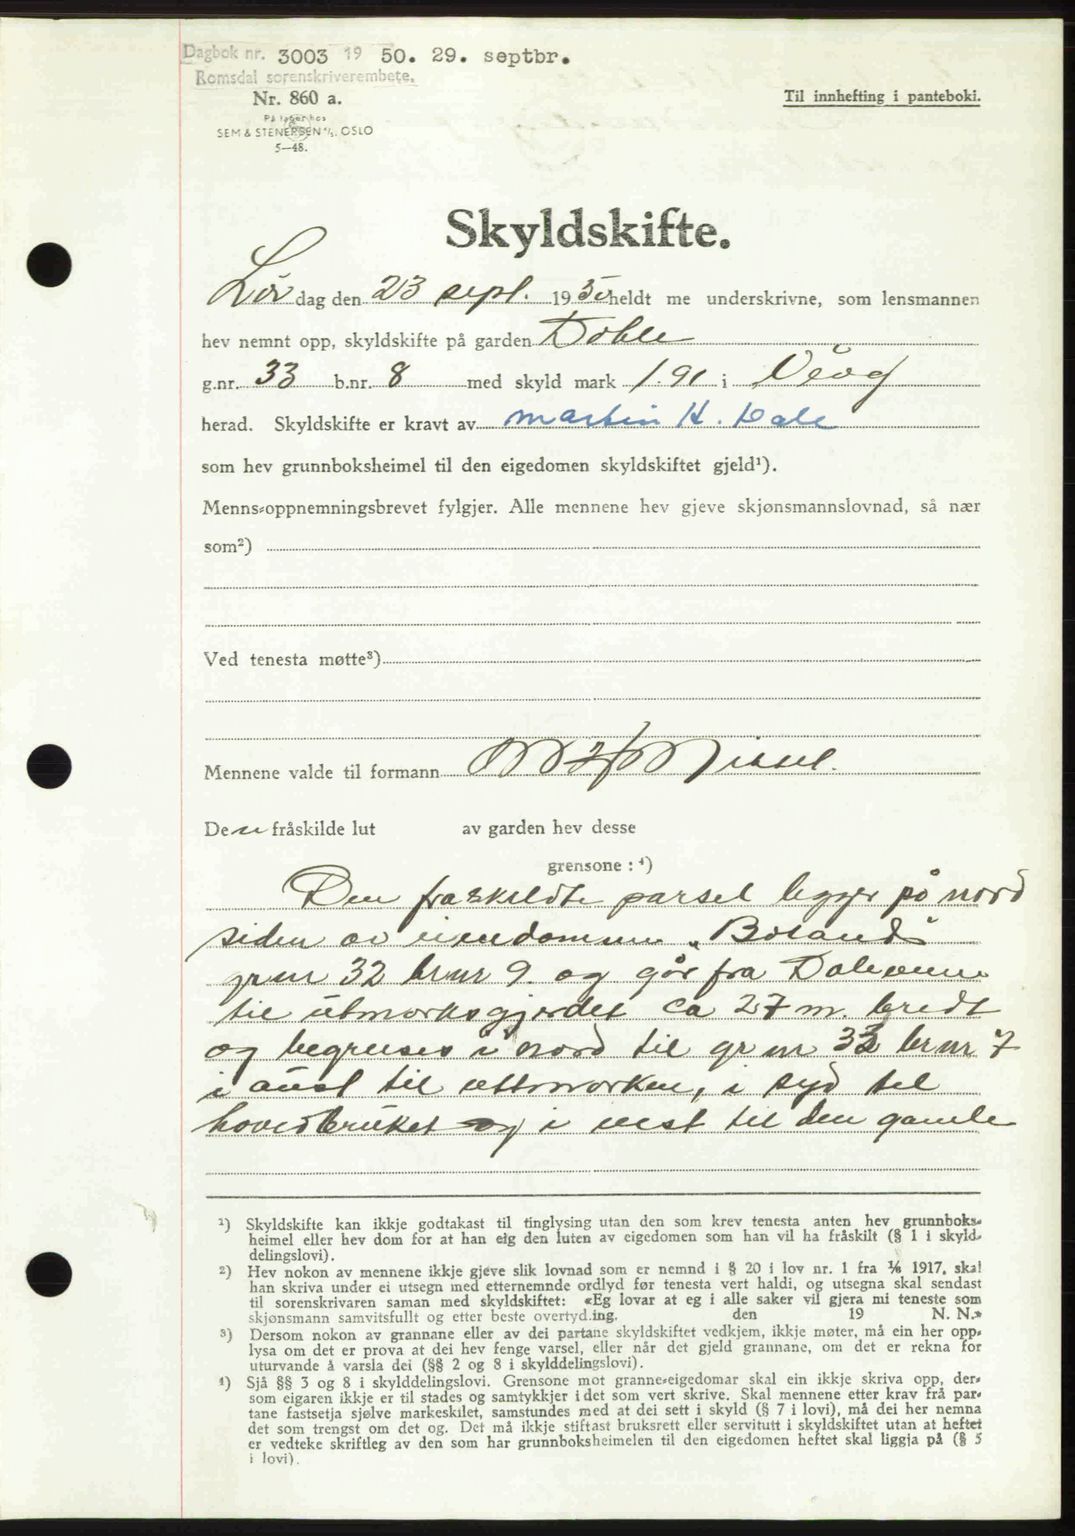 Dagbok nr. 3003 19 50. 29. septbr.
Romsdal sorenskriverembete.
Nr. 860 a.
På lager hos
SEM & STENERSEN A/S, OSLO
5—48.
Til innhefting i panteboki.
Skyldskifte.
Lør dag den 23 sept. 1950 heldt me underskrivne, som lensmannen
hev nemnt opp, skyldskifte på garden
g.nr. 33 b.nr. 8 med skyld mark 1.91 i Veøy
herad. Skyldskifte er kravt av Martin H. Dale
som hev grunnboksheimel til den eigedomen skyldskiftet gjeld¹).
Menns-oppnemningsbrevet fylgjer. Alle mennene hev gjeve skjønsmannslovnad, så nær
som²)
Ved tenesta møtte³)
Mennene valde til formann
Den fråskilde lut av garden hev desse
grensone : ⁴)
Den fraskildte parsel ligger på nord
siden av eiendommen
grnr 32 brnr 9. og går fra
til utmarksgjerdet ca 27 m. bredt
og begrenses i nord til grnr 33 brnr 7
i aust til utmarken, i syd til
hovedbruket og i vest til den gamle
¹) Skyldskifte kan ikkje godtakast til tinglysing utan den som krev tenesta anten hev grunnboks-
heimel eller hev dom for at han eig den luten av eigedomen som han vil ha fråskilt (§ 1 i skyld-
delingslovi).
²) Hev nokon av mennene ikkje gjeve slik lovnad som er nemnd i § 20 i lov nr. 1 fra 1/6 1917, skal
han skriva under ei utsegn med etternemnde ordlyd før tenesta vert haldi, og utsegna skal sendast
til sorenskrivaren saman med skyldskiftet: «Eg lovar at eg i alle saker vil gjera mi teneste som
skjønsmann samvitsfullt og etter beste overtyding. den 19 N. N.»
³) Dersom nokon av grannane eller av dei partane skyldskiftet vedkjem, ikkje møter, må ein her opp-
lysa om det er prova at dei hev fenge varsel, eller når det gjeld grannane, om det er rekna for
uturvande å varsla dei (§§ 2 og 8 i skylddelingslovi).
⁴) Sjå §§ 3 og 8 i skylddelingslovi. Grensone mot granne-eigedomar skal ein ikkje skriva opp, der-
som eigaren ikkje er til stades og samtykkjer i det som vert skrive. Skal mennene etter krav frå par-
tane fastsetja sjølve markeskilet, samstundes med at dei sett i skyld (§ 7 i lovi), må dei her nemna
det som trengst om det og. Det må ikkje stiftast bruksrett eller servitutt i skyldskiftet utan at heftet
er vedteke skriftleg av den som har grunnboksheimelen til den eigedomen heftet skal liggja på (§ 5
i lovi).